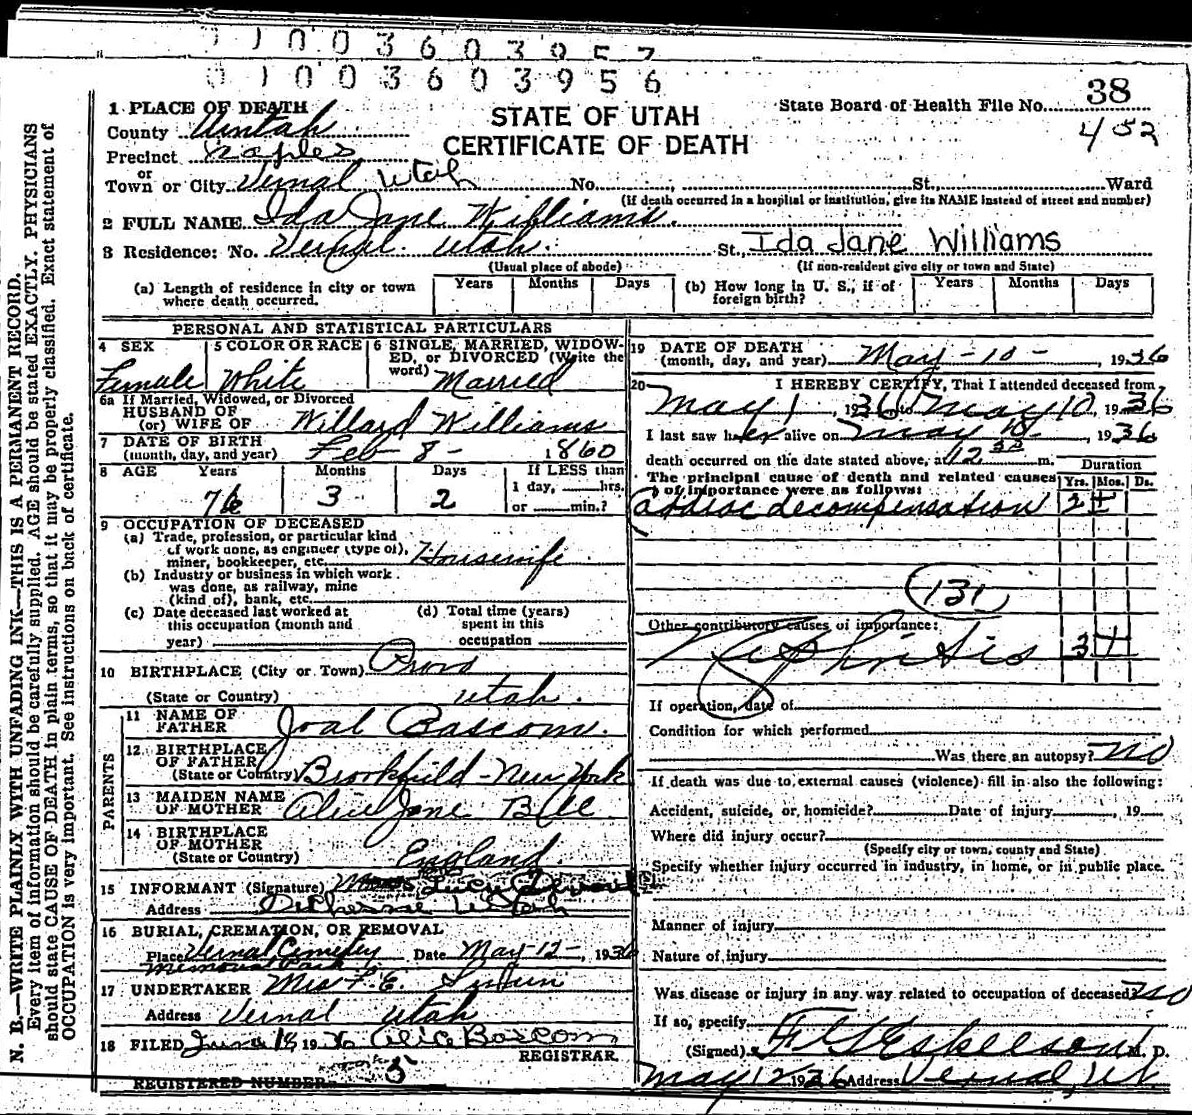 0 1 0 0 3 6 0 3 9 5 7
0 1 0 0 3 6 0 3 9 5 6
N. B.—WRITE PLAINLY WITH UNFADING INK—THIS IS A PERMANENT RECORD.
Every item of information should be carefully supplied. AGE should be stated EXACTLY. PHYSICIANS
should state CAUSE OF DEATH in plain terms, so that it may be properly classified. Exact statement of
OCCUPATION is very important. See instructions on back of certificate.
STATE OF UTAH
CERTIFICATE OF DEATH
State Board of Health File No. 38
452
1 PLACE OF DEATH
County Uintah
Precinct Naples
or
Town or City Vernal Utah No. St., Ward
(If death occurred in a hospital or institution, give its NAME instead of street and number)
2 FULL NAME Ida Jane Williams.
3 Residence: No. Vernal. Utah. St., Ida Jane Williams
(Usual place of abode) (If non-resident give city or town and State)
(a) Length of residence in city or town where death occurred. Years Months Days
(b) How long in U. S., if of foreign birth? Years Months Days
PERSONAL AND STATISTICAL PARTICULARS
4 SEX Female
5 COLOR OR RACE White
6 SINGLE, MARRIED, WIDOWED, or DIVORCED (Write the word) Married
6a If Married, Widowed, or Divorced
HUSBAND OF
(or) WIFE OF Willard Williams
7 DATE OF BIRTH
(month, day, and year) Feb 8 - 1860
8 AGE Years Months Days If LESS than
76 3 2 1 day, hrs.
or min.?
9 OCCUPATION OF DECEASED
(a) Trade, profession, or particular kind
of work done, as engineer (type of),
miner, bookkeeper, etc. Housewife
(b) Industry or business in which work
was done, as railway, mine
(kind of), bank, etc.
(c) Date deceased last worked at
this occupation (month and
year)
(d) Total time (years)
spent in this
occupation
10 BIRTHPLACE (City or Town) Provo
(State or Country) Utah.
PARENTS
11 NAME OF
FATHER Joal Bascom.
12 BIRTHPLACE
OF FATHER
(State or Country) Brookfield - New York
13 MAIDEN NAME
OF MOTHER Alice Jane Bell
14 BIRTHPLACE
OF MOTHER
(State or Country) England.
15 INFORMANT (Signature) Lucy
Address Utah
16 BURIAL, CREMATION, OR REMOVAL
Place Vernal Cemetery Date May-12-, 1936
Memorial Park
17 UNDERTAKER Mrs F. E.
Address Vernal Utah
18 FILED June 18 1936 Alice Bascom
REGISTRAR
5
REGISTERED NUMBER
19 DATE OF DEATH
(month, day, and year) May-10- 1936
20 I HEREBY CERTIFY, That I attended deceased from
May 1, 1936 to May 10, 1936
I last saw her alive on May 10, 1936
death occurred on the date stated above, at 12 m.
The principal cause of death and related causes
of importance were as follows:
Duration
Yrs. Mos. Ds.
Cardiac decompensation 2 +
131
Other contributory causes of importance:
Nephritis 3 +
If operation, date of
Condition for which performed
Was there an autopsy? no
If death was due to external causes (violence) fill in also the following:
Accident, suicide, or homicide? Date of injury , 19
Where did injury occur?
(Specify city or town, county and State)
Specify whether injury occurred in industry, in home, or in public place.
Manner of injury
Nature of injury
Was disease or injury in any way related to occupation of deceased? no
If so, specify
(Signed) F G Eskelson M. D.
May 12 1936 Address Vernal, Ut